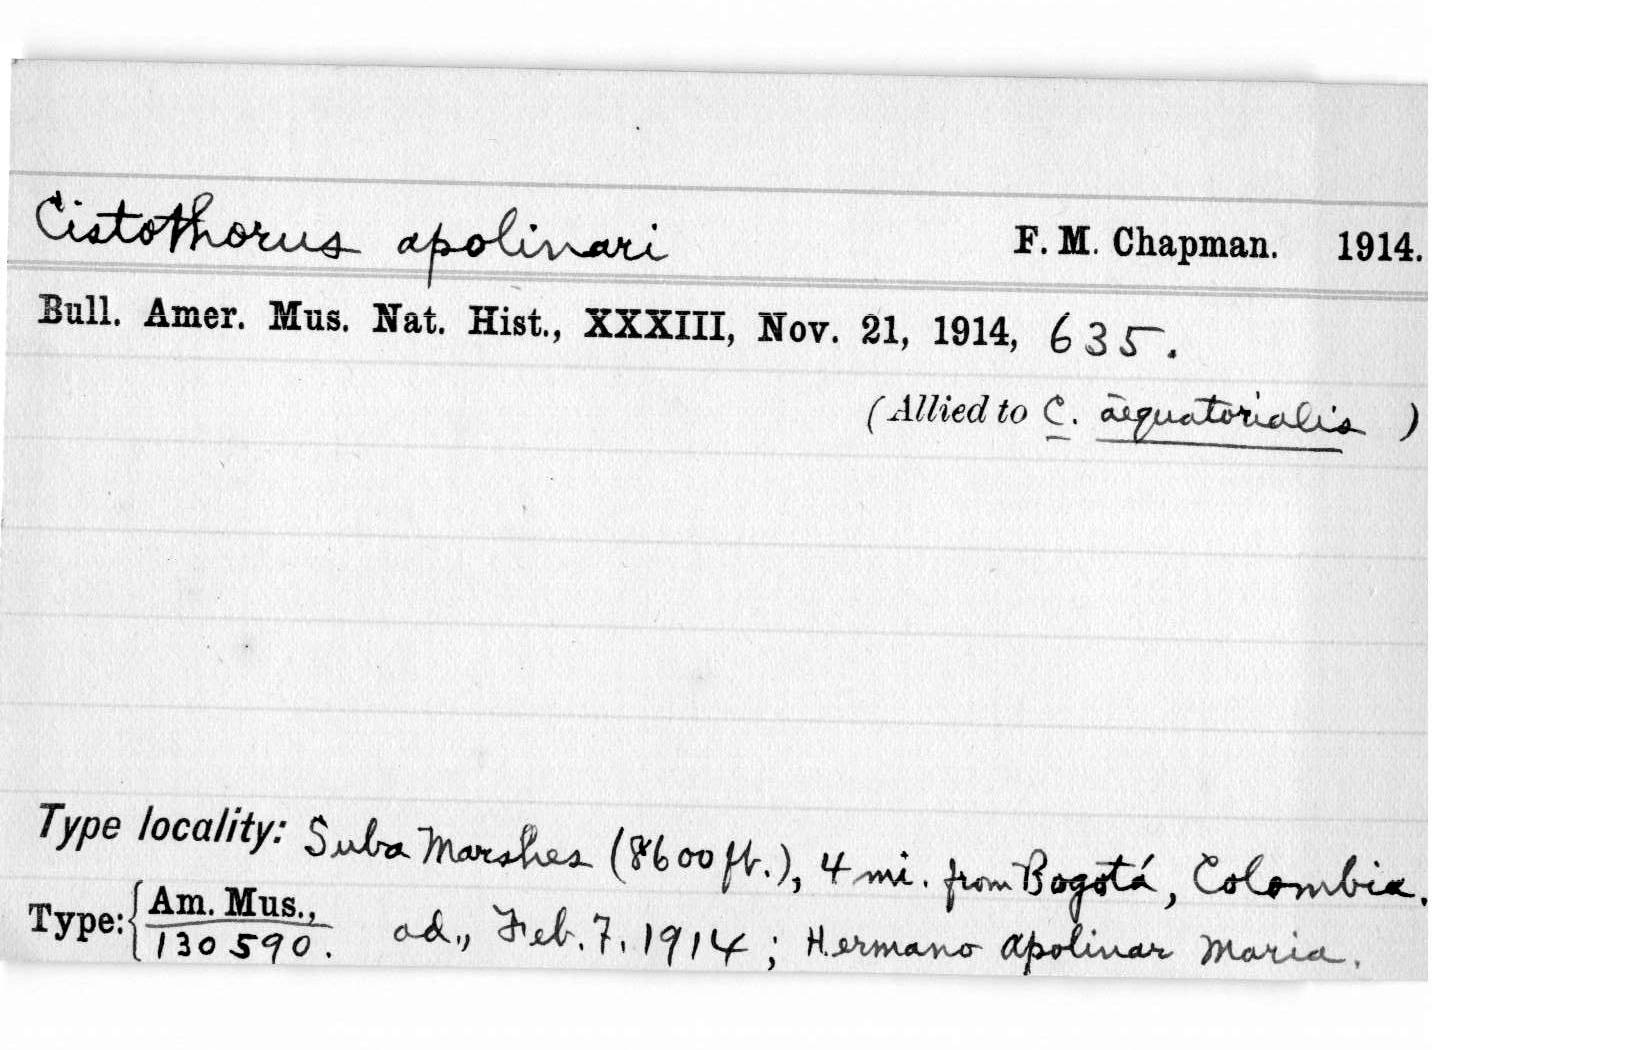 Cistothorus apolinari F. M. Chapman. 1914.
Bull. Amer. Mus. Nat. Hist., XXXIII, Nov. 21, 1914, 635.
(Allied to C. aequatorialis )
Type locality: Suba Marshes (8600 ft.), 4 mi. from Bogotá, Colombia.
Type: { Am. Mus., ad., Feb. 7, 1914; Hermano Apolinar Maria.
130590.